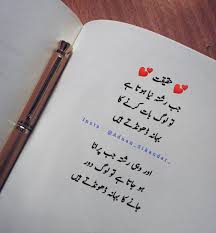 حقیقت
جب رشتہ نیا ہوتا ہے
تو لوگ بات کرنے کا
بہانہ ڈھونڈتے ہیں
Insta @Adnan_Sikandar_
اور وہی رشتہ جب پرانا
ہو جاتا ہے تو لوگ دور
جانے کا بہانہ ڈھونڈتے ہیں